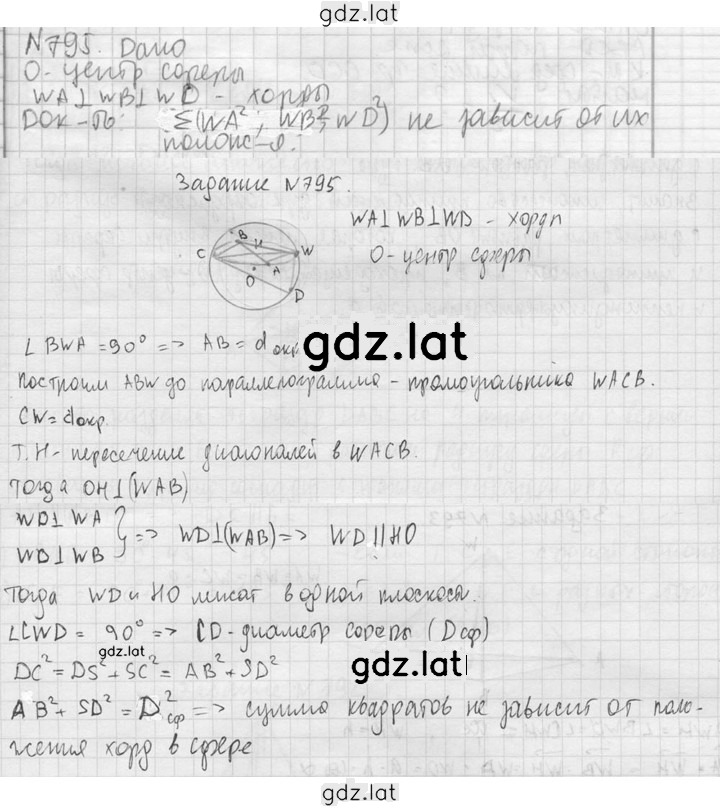 gdz.lat
N795. Дано
O - центр сферы
WA⊥WB⊥WD - хорды
Док-ть: Σ(WA²; WB²; WD²) не зависит от их
полож-я.
Задание N795.
WA⊥WB⊥WD - хорды
O - центр сферы
B H W C O A D
∠BWA = 90° => AB = d окр
gdz.lat
Построим ABW до параллелограмма - прямоугольника WACB.
CW = d окр.
Т. H - пересечение диагоналей в WACB.
Тогда OH⊥(WAB)
WD⊥WA
WD⊥WB } => WD⊥(WAB) => WD || HO
Тогда WD и HO лежат в одной плоскос.
∠CWD = 90° => CD - диаметр сферы (D сф)
DC² = DS² + SC² = AB² + SD²
gdz.lat
AB² + SD² = D²сф => сумма квадратов не зависит от поло-
жения хорд в сфере
gdz.lat